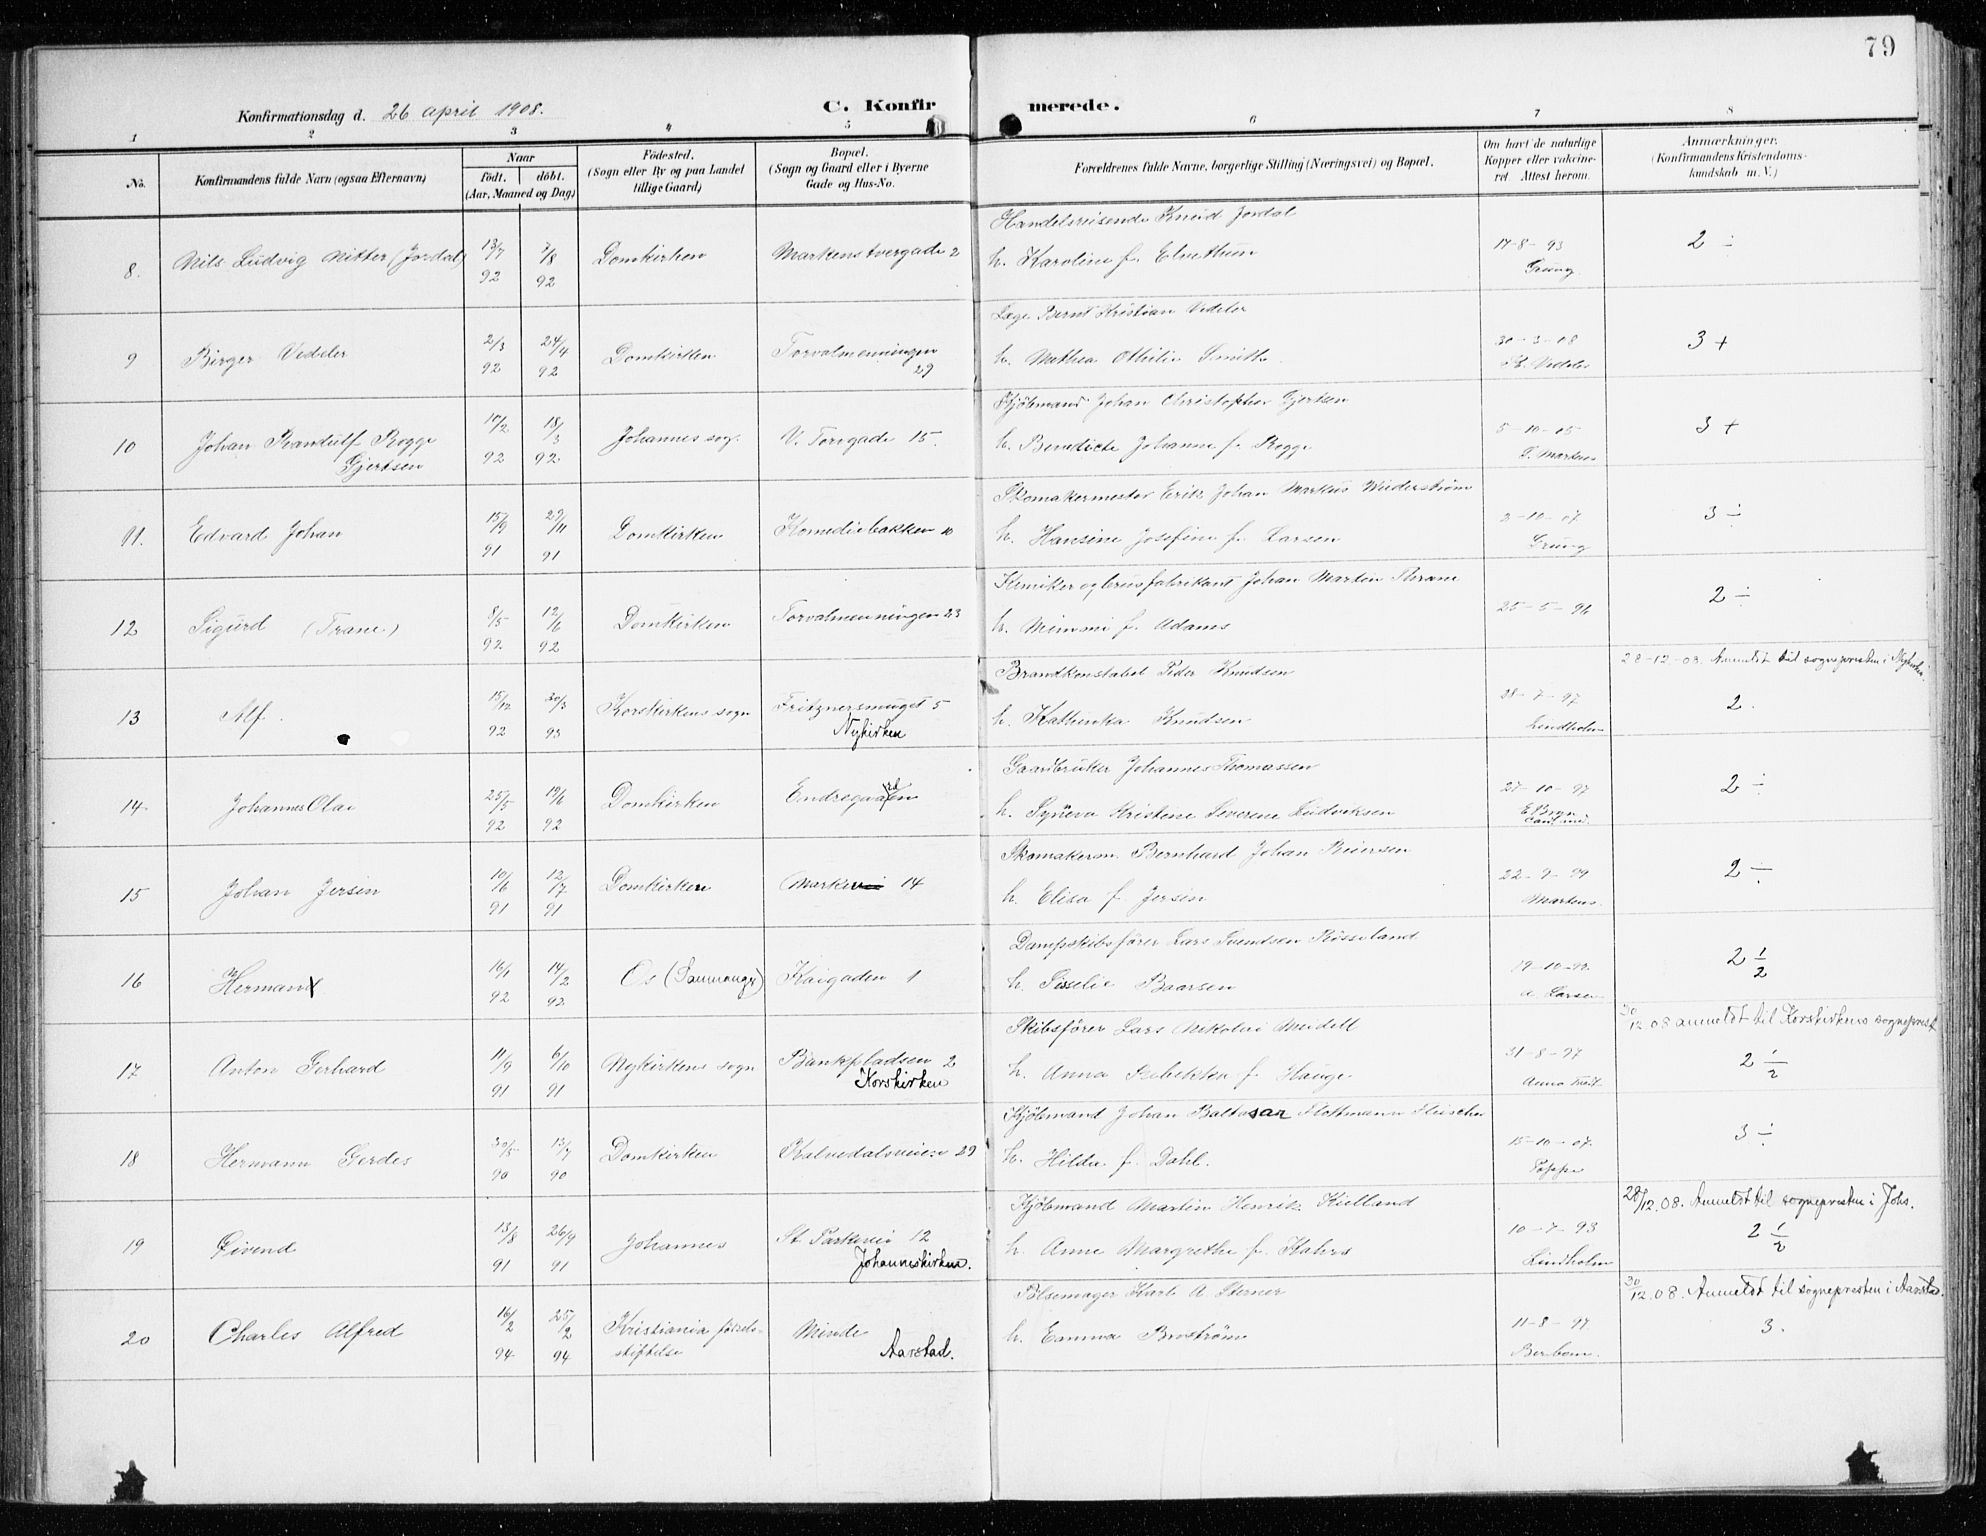 79
Konfirmationsdag d. 26 april 1908.
C. Konfirmerede.
1 2 3 4 5 6 7 8
No.
Konfirmandens fulde Navn (ogsaa Efternavn)
Naar
født. døbt.
(Aar, Maaned og Dag)
Fødested.
(Sogn eller By og paa Landet
tillige Gaard)
Bopæl.
(Sogn og Gaard eller i Byerne
Gade og Hus-No.
Forældrenes fulde Navne, borgerlige Stilling (Næringsvei) og Bopæl.
Om havt de naturlige
Kopper eller vakcine-
ret. Attest herom.
Anmærkninger.
(Konfirmandens Kristendoms-
kundskab m. V.)
8. Nils Ludvig Nitter (Jordal) 13/7 92 7/8 92 Domkirken Markenstvergade 2
Handelsreisende Kneid Jordal
h. Karoline f. Elvethun
17-8-93 Grung
2 ÷
9 Birger Vedeler 2/3 92 24/4 92 Domkirken Torvalmenningen 29
Læge Bernt Kristian Vedeler
h. Mathea Othilie Smith
30-3-08 Vedeler
3 +
10 Johan Randulf Rogge Gjertsen 17/2 92 18/3 92 Johannes sog. V. Torvgade 15.
Kjøbmand Johan Christopher Gjertsen
h. Benedicte Johanne f. Rogge
5-10-05 Martens
3 +
11. Edvard Johan 15/9 91 29/11 91 Domkirken Komediebakken 10
Skomakermester Erik Johan Markus Wiederstrøm
h. Hansine Josefine f. Larsen
2-10-07 Grung
3 ÷
12 Sigurd (Trane) 8/5 92 12/6 92 Domkirken Torvalmenningen 23
Kemiker og brusfabrikant Johan Martin Thrane
h. Mimmi f. Adams
25-5-96
2 ÷
13 Alf. 15/12 92 30/3 93 Korskirkens sogn Fritznersmuget 5
Nykirken
Brandkonstabel Peder Knudsen
h. Kathinka Knudsen
28-7-97 Lindholm
28-12-08. Anmeldt til sognepresten i Nykirken.
2.
14 Johannes Olai 25/5 92 19/6 92 Domkirken Endregaarden
Gaardbruker Johannes Thomassen
h. Syneva Kristene Severene Ludviksen
27-10-97
2 ÷
15 Johan Jersin 10/6 91 12/7 91 Domkirken Markevei 14
Skomakerm. Bernhard Johan Reiersen
h. Elisa f. Jersin
22-9-99 Martens.
2 ÷
16 Herman 16/1 92 14/2 92 Os (Samnanger) Kaigaden 1
Dampskibsfører Lars Svendsen Røsseland
h. Sisselie Baarsen
19-10-92 A Larsen
2 1/2
17 Anton Gerhard 11/9 91 6/10 91 Nykirkens sogn Bankpladsen 2
Korskirken
Skibsfører Lars Nikolai Meidell
h. Anna Rebekka f. Hauge
31-8-97
30/12.08 anmeldt til Korskirkens sogneprest
2 1/2
18 Hermann Gerdes 30/5 90 13/7 90 Domkirken Kalvedalsveien 29
Kjøbmand Johan Baltasar Flottmann Fleischer
h. Hilda f. Dahl.
15-10-07. Poppe
3 ÷
19 Eivend 13/8 91 26/9 91 Johannes St. Parkevei 12
Johanneskirken.
Kjøbmand Martin Henrik Kielland
h. Anne Margrethe f. Kahrs
10-7-93 Lindholm
28/12.08. Anmeldt til sognepresten i Johs.
2 1/2
20 Charles Alfred 16/2 94 25/2 94 Kristiania fødsels-
stiftelse
Minde
Aarstad.
Pølsemager Karl A. Sterner
h. Emma Brostrøm
11-8-97
30/12.08. Anmeldt til sognepresten i Aarstad.
3.